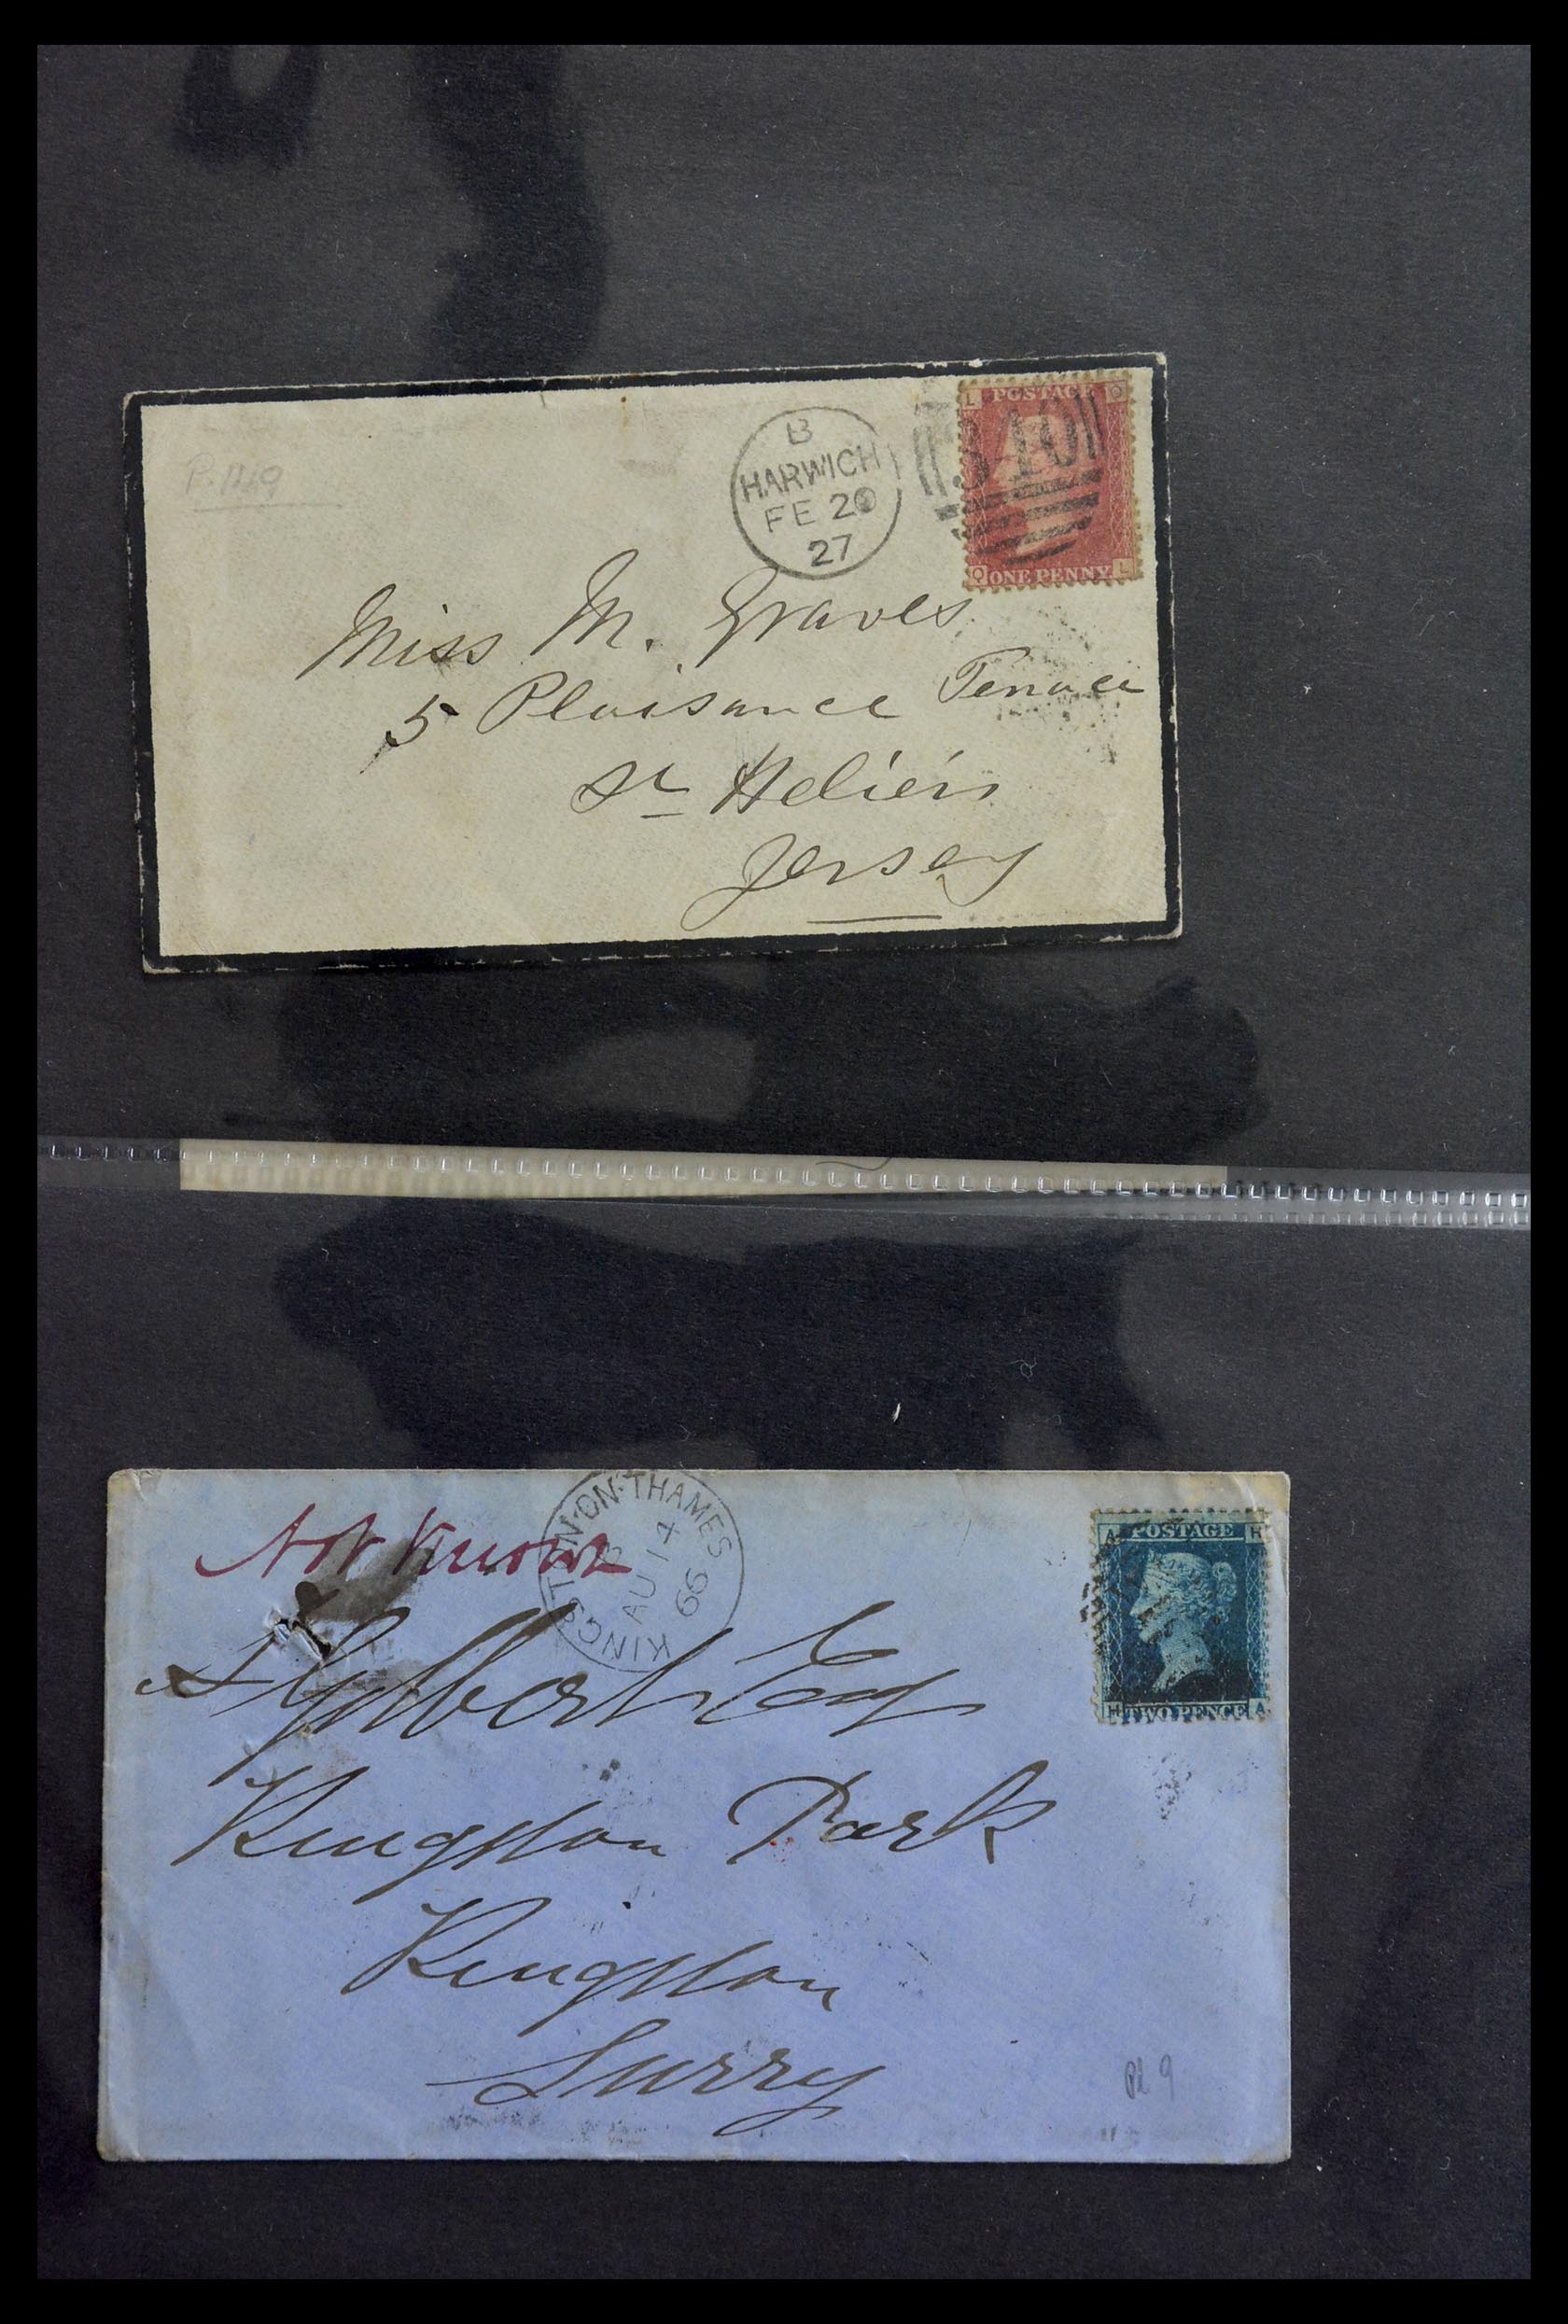 P. 149
B
HARWICH
FE 20
27
L POSTAGE O
310
O ONE PENNY L
Miss M. Graves
5 Plaisance Terrace
St Heliers
Jersey
Not Known
KINGSTON-ON-THAMES
AU 14
66
A POSTAGE H
H TWO PENCE A
Esq
Kingston Park
Kingston
Surry
Pl 9